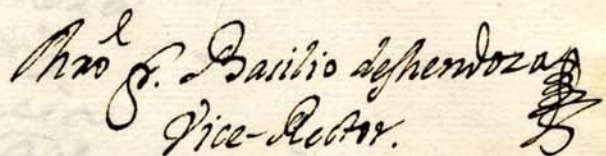 fr. Basilio deMendoza
Vice-Rector.